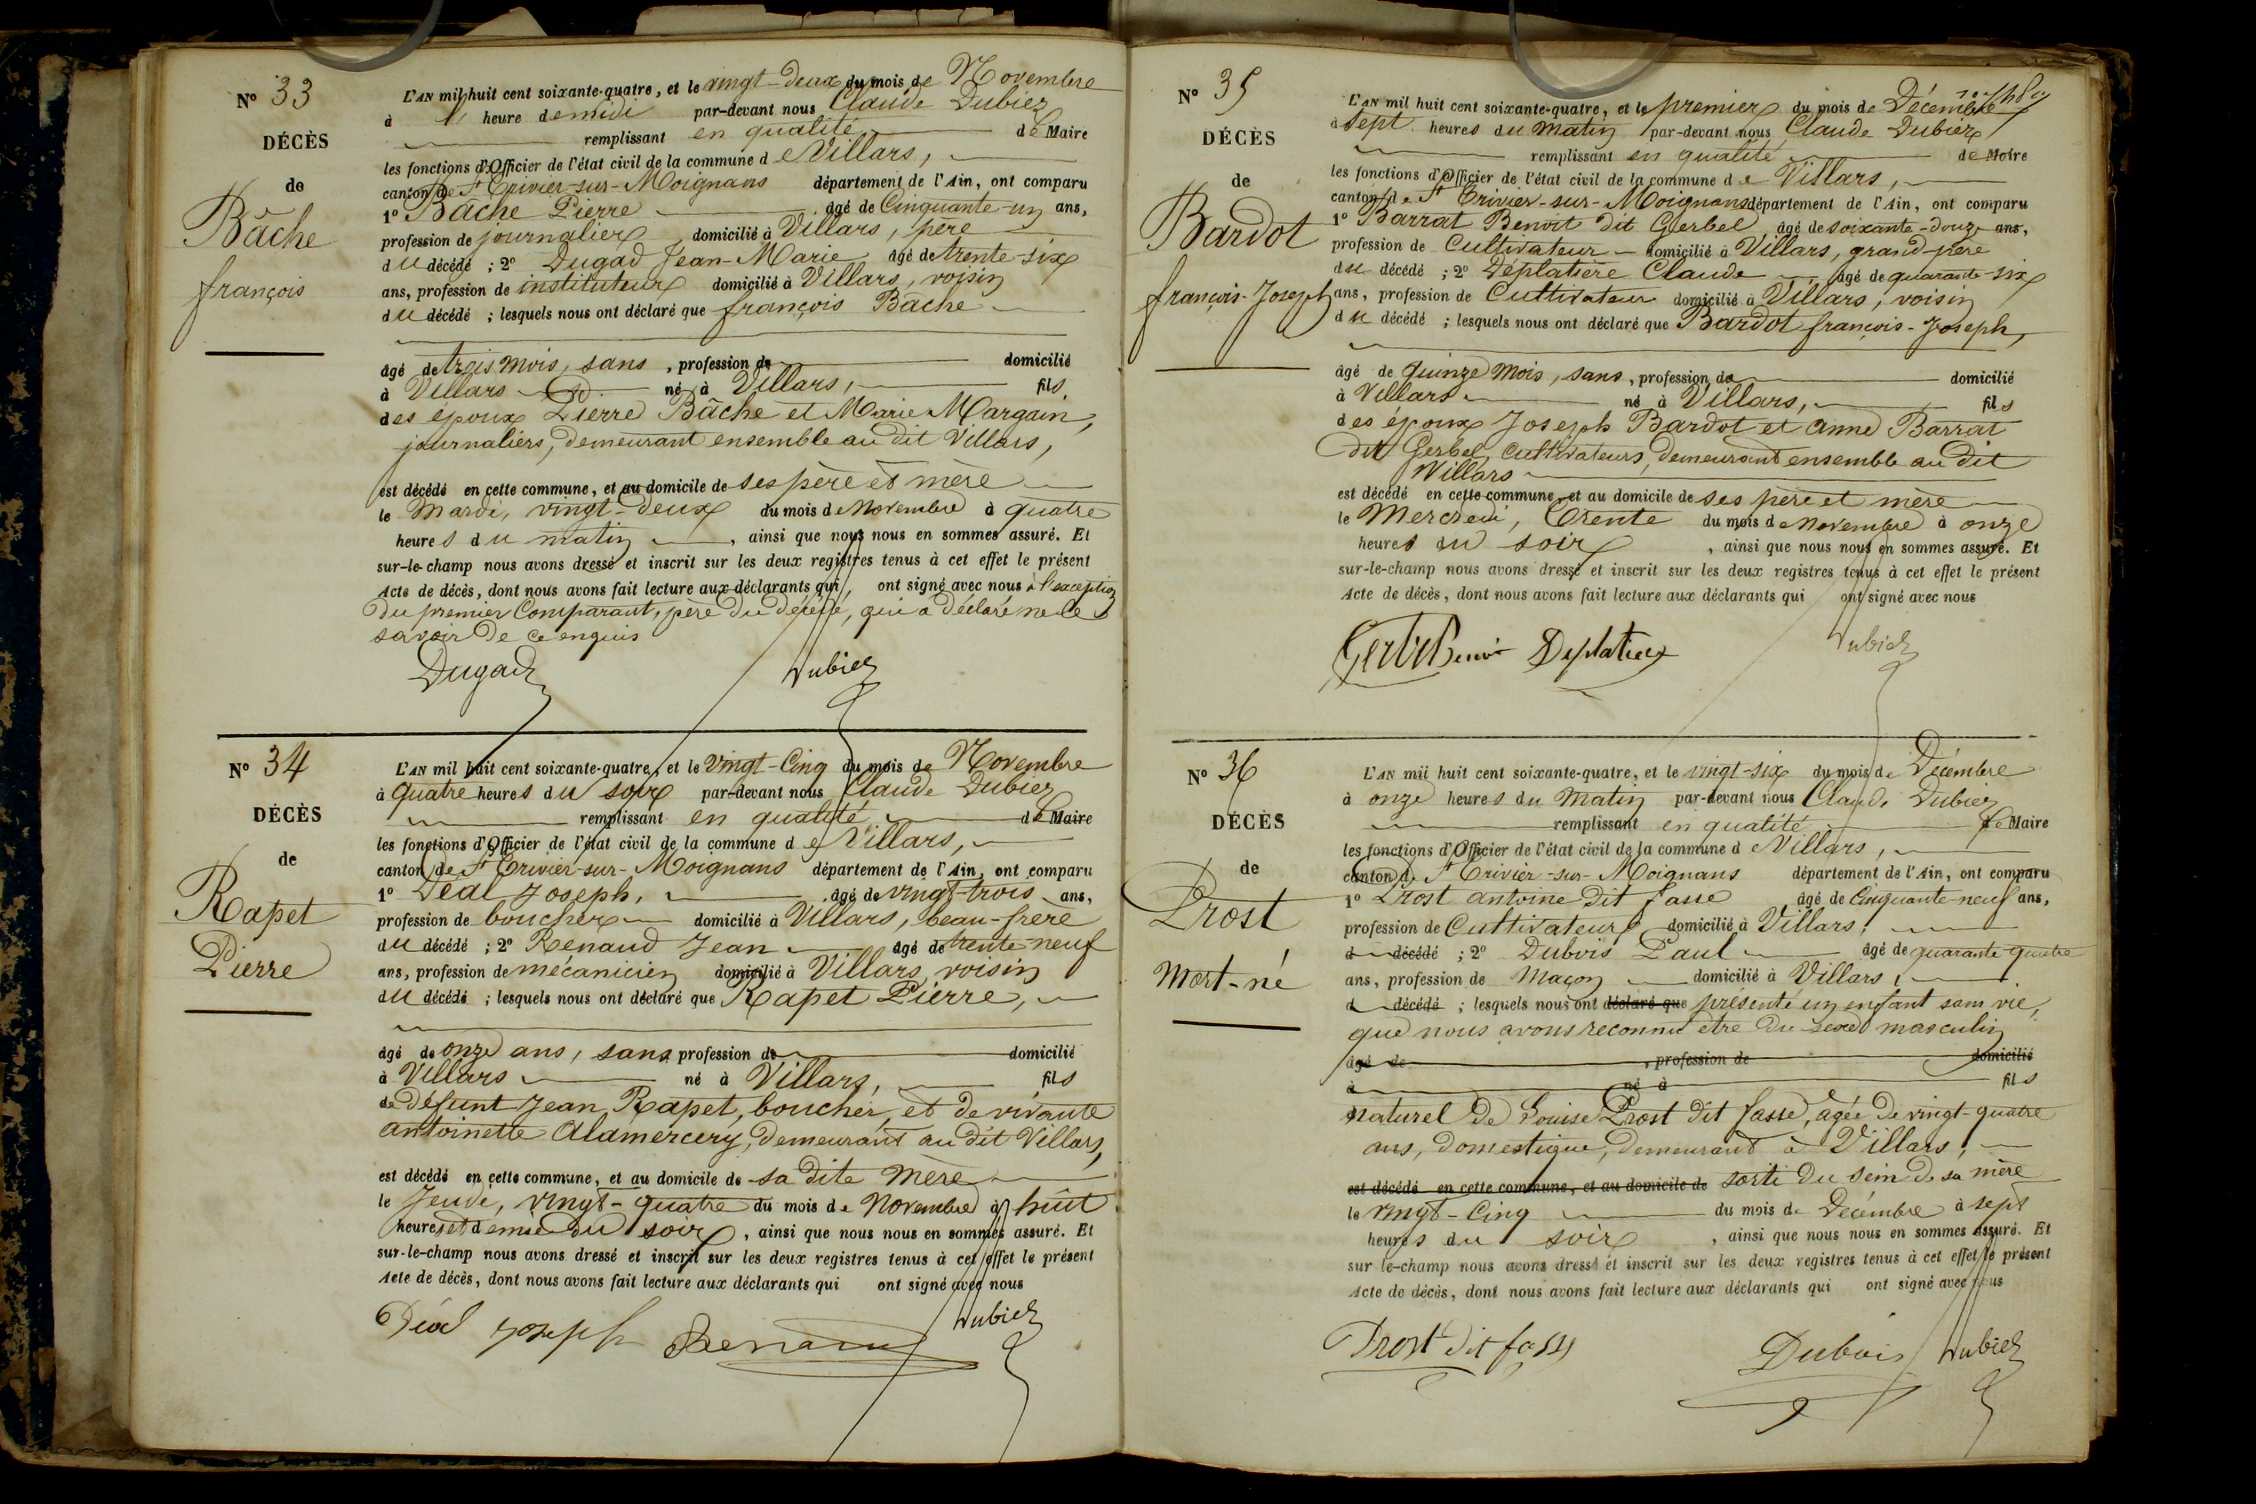 N° 33
DÉCÈS
de
Bâche
françois
L'AN mil huit cent soixante-quatre, et le vingt-deux du mois de Novembre
à heure de midi par-devant nous Claude Dubiez
remplissant en qualité de Maire
les fonctions d'Officier de l'état civil de la commune de Villars,
canton de St Trivier-sur-Moignans département de l'Ain, ont comparu
1° Bâche Pierre âgé de Cinquante-un ans,
profession de journalier domicilié à Villars, père
du décédé ; 2° Dugad Jean-Marie âgé de trente-six
ans, profession de instituteur domicilié à Villars, voisin
du décédé ; lesquels nous ont déclaré que françois Bâche
âgé de trois mois, sans, profession de domicilié
à Villars né à Villars, fils
des époux Pierre Bâche et Marie Margain,
journaliers, demeurant ensemble au dit Villars,
est décédé en cette commune, et au domicile de ses père et mère
le Mardi, vingt-deux du mois de Novembre à quatre
heures du matin, ainsi que nous nous en sommes assuré. Et
sur-le-champ nous avons dressé et inscrit sur les deux registres tenus à cet effet le présent
Acte de décès, dont nous avons fait lecture aux déclarants qui, ont signé avec nous à l'exception
du premier Comparant, père du décédé, qui a déclaré ne le
savoir de ce enquis
Dugad Dubiez
N° 34
DÉCÈS
de
Rapet
Pierre
L'AN mil huit cent soixante-quatre, et le vingt-Cinq du mois de Novembre
à quatre heures du soir par-devant nous Claude Dubiez
remplissant en qualité de Maire
les fonctions d'Officier de l'état civil de la commune de Villars,
canton de St Trivier-sur-Moignans département de l'Ain, ont comparu
1° Déal Joseph, âgé de vingt-trois ans,
profession de boucher domicilié à Villars, beau-frère
du décédé ; 2° Renaud Jean âgé de trente-neuf
ans, profession de mécanicien domicilié à Villars, voisin
du décédé ; lesquels nous ont déclaré que Rapet Pierre,
âgé de onze ans, sans profession de domicilié
à Villars né à Villars, fils
de défunt Jean Rapet, boucher, et de vivante
antoinette Alamercery, demeurant au dit Villars,
est décédé en cette commune, et au domicile de sa dite mère
le Jeudi, vingt-quatre du mois de Novembre à huit
heures et demie du soir, ainsi que nous nous en sommes assuré. Et
sur-le-champ nous avons dressé et inscrit sur les deux registres tenus à cet effet le présent
Acte de décès, dont nous avons fait lecture aux déclarants qui ont signé avec nous
Déal joseph Renaud Dubiez
N° 35
DÉCÈS
de
Bardot
françois-Joseph
L'AN mil huit cent soixante-quatre, et le premier du mois de Décembre
à sept heures du matin par-devant nous Claude Dubiez
remplissant en qualité de Maire
les fonctions d'Officier de l'état civil de la commune de Villars,
canton de St Trivier-sur-Moignans département de l'Ain, ont comparu
1° Barrat Benoit dit Gerbel âgé de soixante-douze ans,
profession de Cultivateur domicilié à Villars, grand-père
du décédé ; 2° Déplatière Claude âgé de quarante-six
ans, profession de Cultivateur domicilié à Villars, voisin
du décédé ; lesquels nous ont déclaré que Bardot françois-Joseph,
âgé de quinze mois, sans, profession de domicilié
à Villars né à Villars, fils
des époux Joseph Bardot et anne Barrat
dit Gerbel, cultivateurs, demeurant ensemble au dit
Villars
est décédé en cette commune, et au domicile de ses père et mère
le Mercredi, trente du mois de Novembre à onze
heures du soir, ainsi que nous nous en sommes assuré. Et
sur-le-champ nous avons dressé et inscrit sur les deux registres tenus à cet effet le présent
Acte de décès, dont nous avons fait lecture aux déclarants qui ont signé avec nous
Gerbel Benoit Deplatiere Dubiez
N° 36
DÉCÈS
de
Prost
Mort-né
L'AN mil huit cent soixante-quatre, et le vingt-six du mois de Décembre
à onze heures du Matin par-devant nous Claude Dubiez
remplissant en qualité de Maire
les fonctions d'Officier de l'état civil de la commune de Villars,
canton de St Trivier-sur-Moignans département de l'Ain, ont comparu
1° Prost antoine dit fasse âgé de Cinquante-neuf ans,
profession de Cultivateur domicilié à Villars,
d décédé ; 2° Dubois Paul âgé de quarante quatre
ans, profession de Maçon domicilié à Villars,
d décédé ; lesquels nous ont déclaré que présenté un enfant sans vie,
que nous avons reconnu être du sexe masculin
âgé de , profession de domicilié
à né à fils
naturel de Louise Prost dit fasse, âgée de vingt-quatre
ans, domestique, demeurant à Villars,
est décédé en cette commune, et au domicile de sorti du sein de sa mère
le vingt-Cinq du mois de Décembre à sept
heures du soir, ainsi que nous nous en sommes assuré. Et
sur-le-champ nous avons dressé et inscrit sur les deux registres tenus à cet effet le présent
Acte de décès, dont nous avons fait lecture aux déclarants qui ont signé avec nous
Prost dit fasse Dubois Dubiez